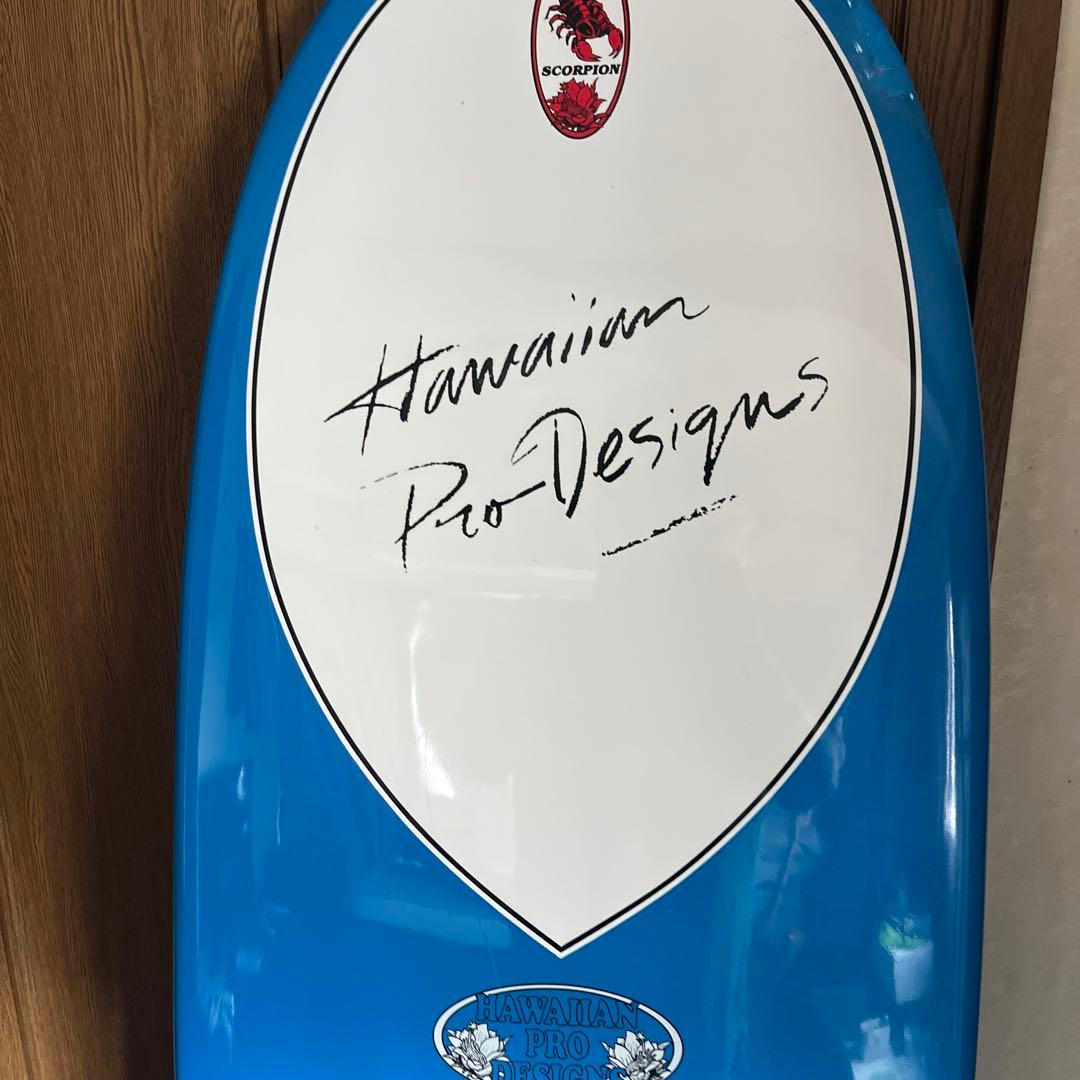 SCORPION
Hawaiian
Pro Designs
HAWAIIAN
PRO
DESIGNS